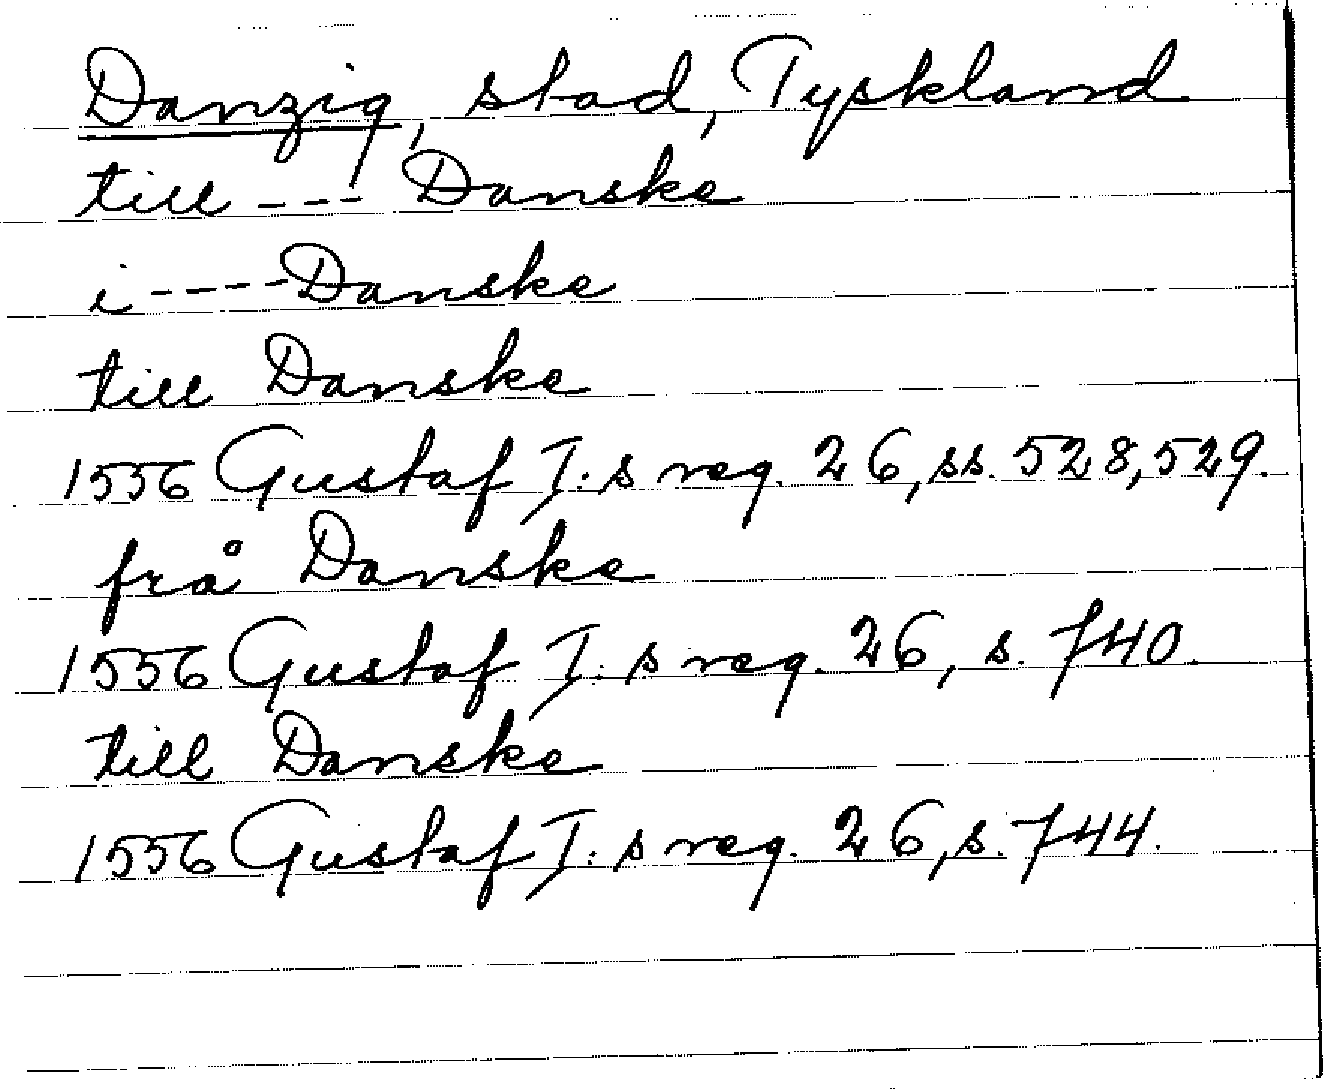 Danzig, stad, Tyskland
till --- Danske
i ---- Danske
till Danske
1556 Gustaf I:s reg. 26, ss. 528, 529.
frå Danske
1556 Gustaf I:s reg. 26, s. 740.
till Danske
1556 Gustaf I:s reg. 26, s. 744.